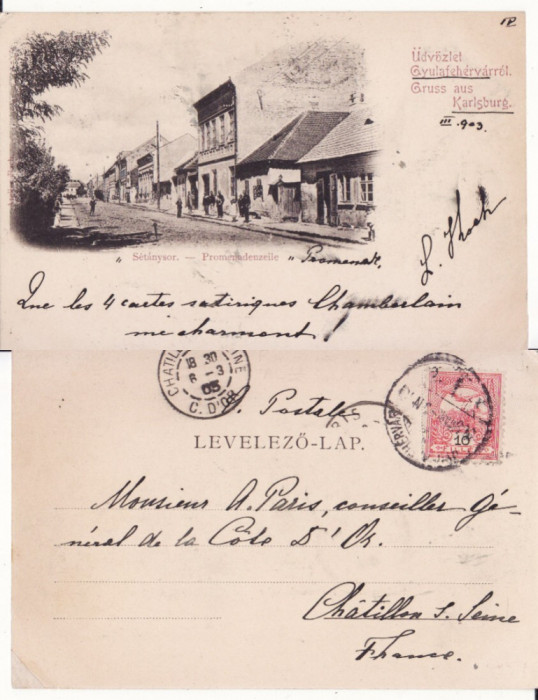 Üdvözlet
Gyulafehérvárról.
Gruss aus
Karlsburg.
III. 903.
Sétánysor. — Promenadenzeile
Que les 4 cartes satiriques Chamberlain
me charmont!
18 30
6 -3
03
C. D'OR
Postale
LEVELEZŐ-LAP.
10
Monsieur A. Paris, conseiller Gé-
néral de la Côte D'Or.
Châtillon s. Seine
France.